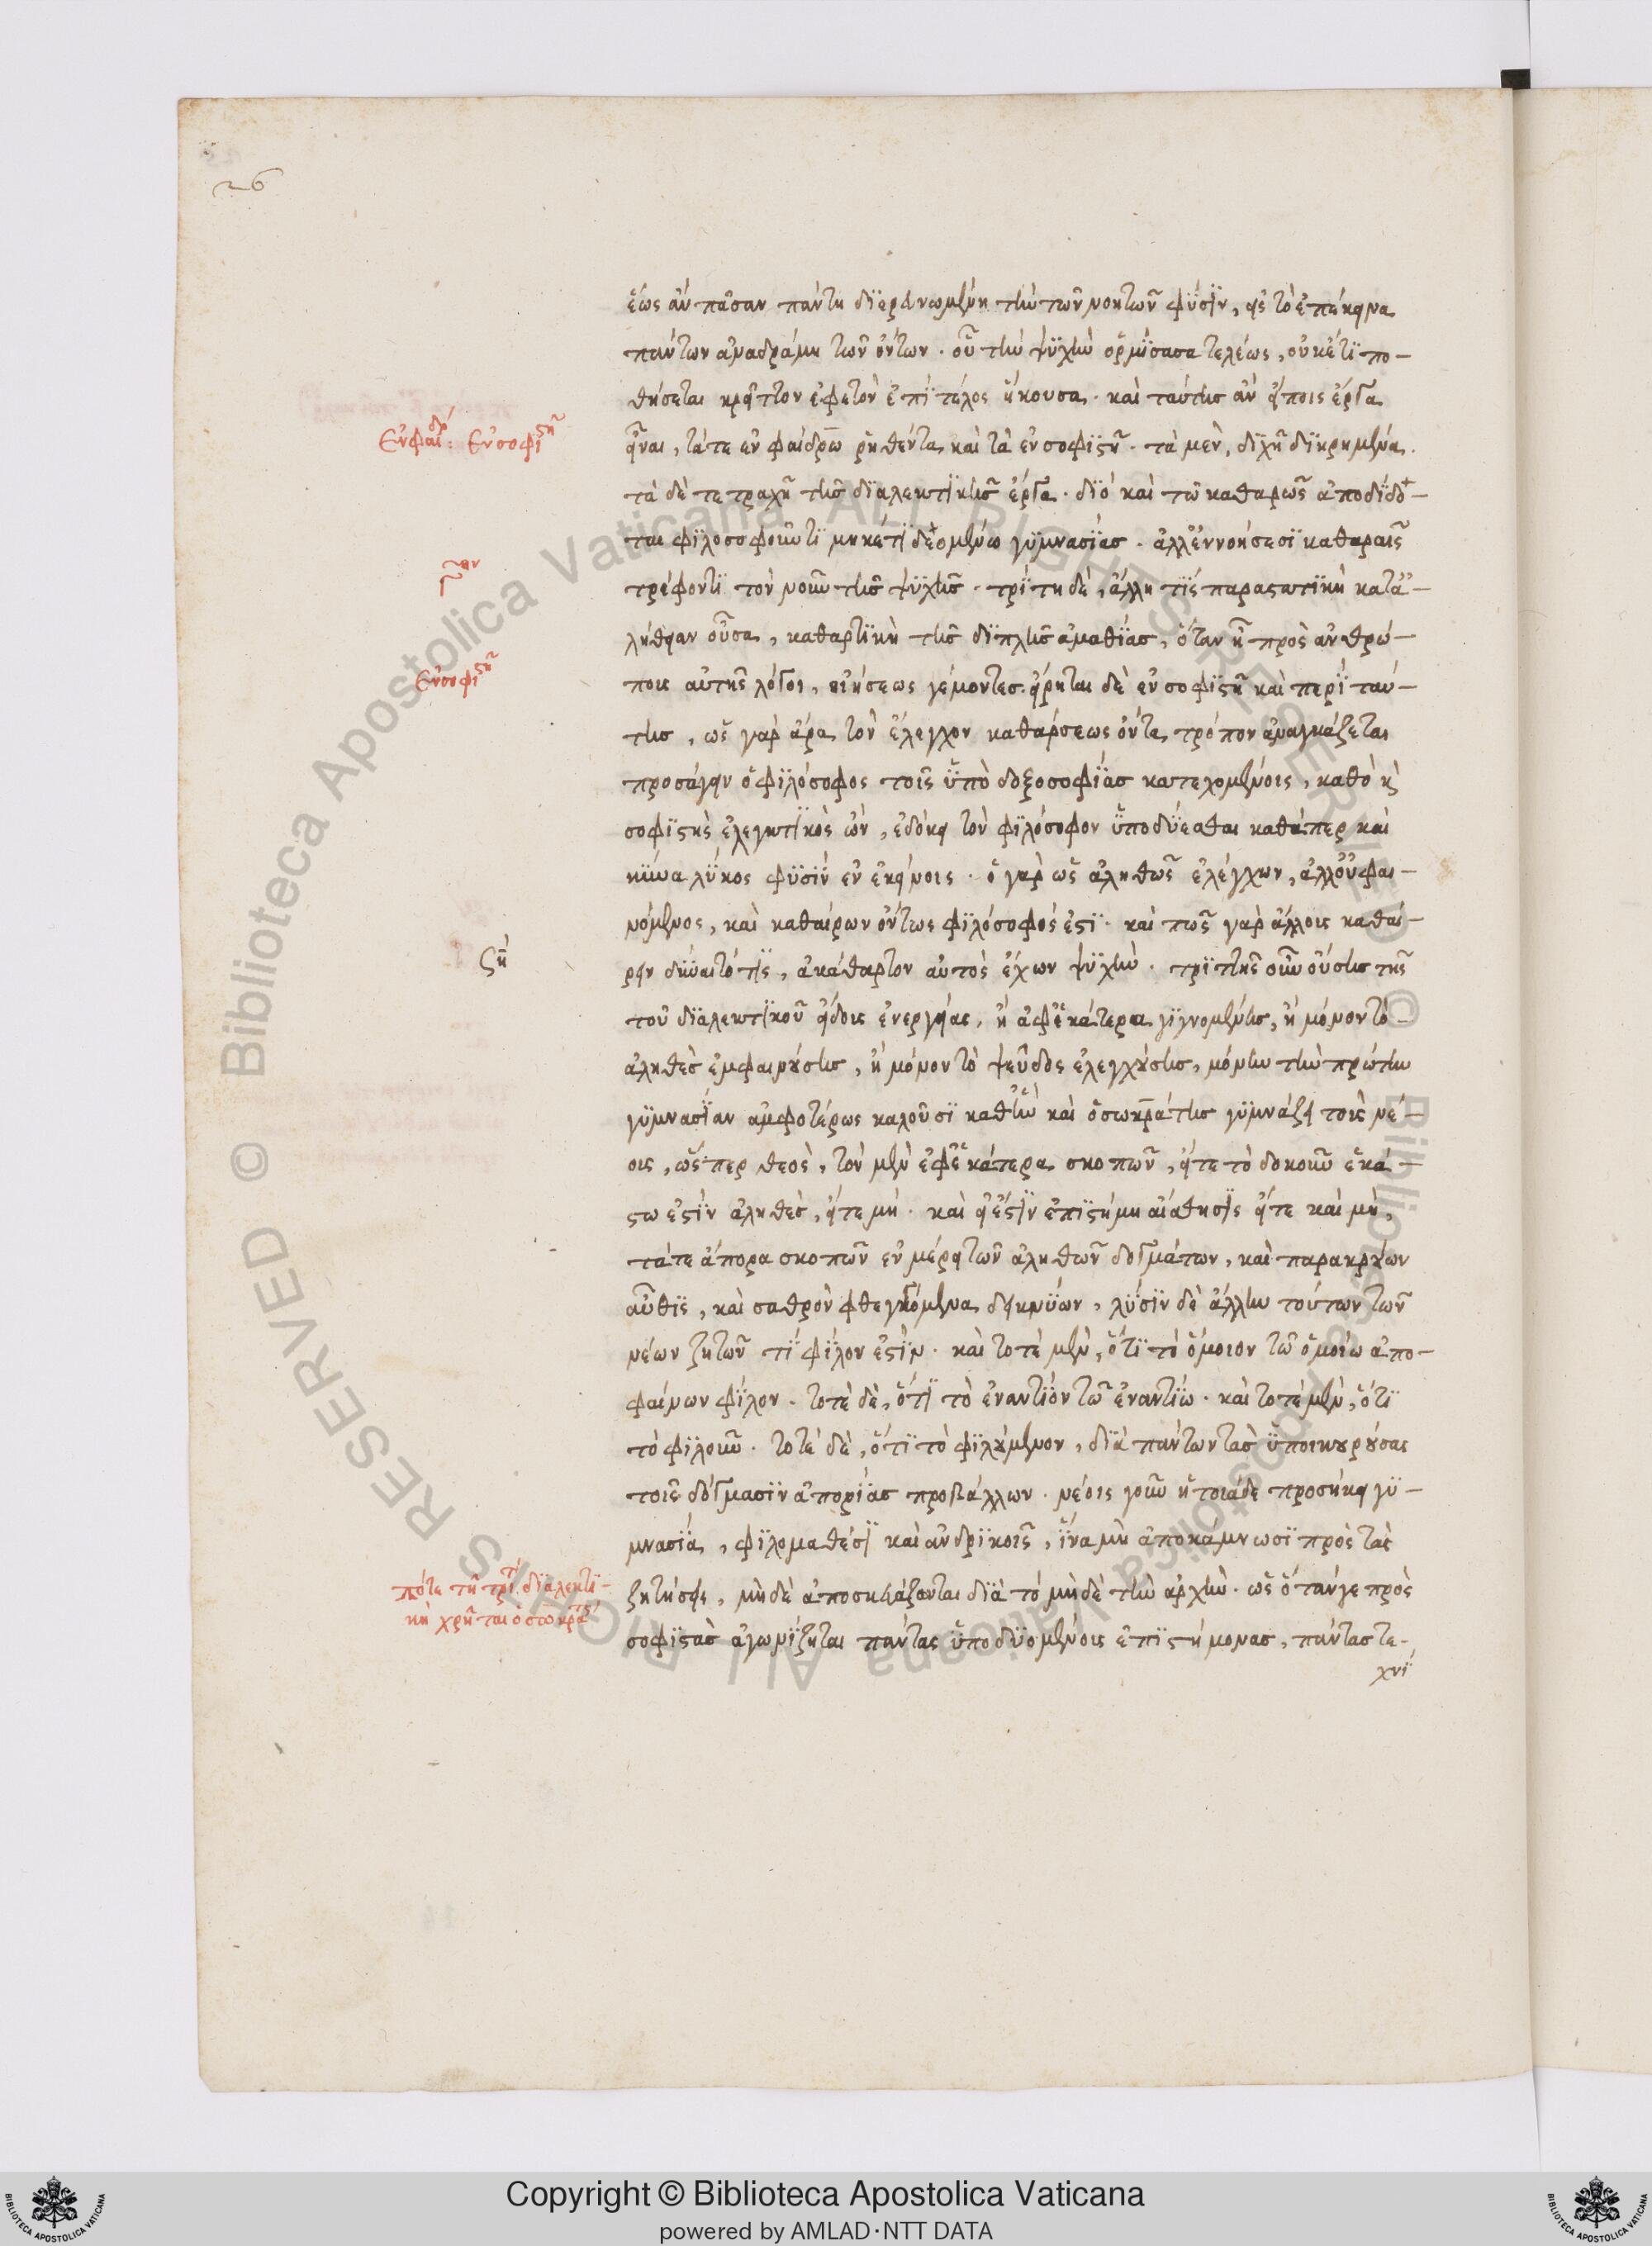 26
ἕως ἂν πᾶσαν πάντη διερευνωμένη τὴν τῶν νοητῶν φύσιν, εἰς τὸ ἐπέκεινα
πάντων ἀναδράμη τῶν ὄντων. οὗ τὴν ψυχὴν ὁρμίσασα τελέως, οὐκέτι πο-
θήσεται κρεῖττον ἐφετὸν ἐπὶ τέλος ἥκουσα. καὶ ταύτης ἂν εἴποις ἔργα
Ἐν φαίδρ: Ἐν σοφιστῆ
εἶναι, τά τε ἐν φαίδρω ῥηθέντα καὶ τὰ ἐν σοφιστῆ. τὰ μὲν, διχῆ διηρημένα.
τὰ δὲ τετραχῆ τῆς διαλεκτικῆς ἔργα. διὸ καὶ τῶ καθαρῶς ἀποδίδο-
ται φιλοσοφοῦντι μηκέτι δεομένω γυμνασίας. ἀλλ' ἐννοήσεσι καθαραῖς
τρέφοντι τὸν νοῦν τῆς ψυχῆς. τρίτη δὲ, ἄλλη τίς παραστατικὴ κατὰ ἀ-
λήθειαν οὖσα, καθαρτικὴ τῆς διπλῆς ἀμαθίας, ὅταν ἦ πρὸς ἀνθρώ-
Ἐν σοφιστῆ
ποις αὐτῆς λόγοι, οἰήσεως γέμοντες. εἴρηται δὲ ἐν σοφιστῆ καὶ περὶ ταύ-
της, ὡς γὰρ ἄρα τὸν ἔλεγχον καθάρσεως ὄντα τρόπον ἀναγκάζεται
προσάγειν ὁ φιλόσοφος τοῖς ὑπὸ δοξοσοφίας κατεχομένοις, καθὸ κὶ
σοφιστὴς ἐλεγκτικὸς ὢν, ἐδόκει τὸν φιλόσοφον ὑποδύεσθαι καθάπερ καὶ
κύνα λύκος φύσιν ἐν ἐκείνοις. ὁ γὰρ ὡς ἀληθῶς ἐλέγχων, ἀλλ' οὐ φαι-
νόμενος, καὶ καθαίρων ὄντως φιλόσοφός ἐστι. καὶ πῶς γὰρ ἄλλοις καθαί-
ρειν δύναιτό τις, ἀκάθαρτον αὐτὸς ἔχων ψυχὴν. τριττῆς οὖν οὔσης τῆς
τοῦ διαλεκτικοῦ εἴδους ἐνεργείας, ἢ ἀφ' ἑκάτερα γιγνομένης, ἢ μόνον τὸ
ἀληθὲς ἐμφαινούσης, ἢ μόνον τὸ ψεῦδος ἐλεγχούσης, μόνην τὴν πρώτην
γυμνασίαν ἀμφοτέρως καλοῦσι καθ' ἣν καὶ ὁ σωκράτης γυμνάζει τοὺς νέ-
ους, ὥσπερ θεὸς, τὸν μὲν ἐφ' ἑκάτερα σκοπῶν, εἴτε τὸ δοκοῦν ἑκά-
στω ἐστὶν ἀληθὲς, εἴτε μὴ. καὶ εἰ ἔστιν ἐπιστήμη αἴσθησις εἴτε καὶ μὴ,
τά τε ἄπορα σκοπῶν ἐν μέρει τῶν ἀληθῶν δογμάτων, καὶ παρακρούων
αὖθις, καὶ σαθρὸν φθεγγόμενα δεικνύων, λύσιν δὲ ἄλλην τούτων τῶν
νέων ζητῶν τί φίλον ἐστὶν. καὶ τοτὲ μὲν, ὅτι τὸ ὅμοιον τῶ ὁμοίω ἀπο-
φαίνων φίλον. τοτὲ δὲ, ὅτι τὸ ἐναντίον τῶ ἐναντίω. καὶ τοτὲ μὲν, ὅτι
τὸ φιλοῦν. τοτὲ δὲ, ὅτι τὸ φιλούμενον, διὰ πάντων τὰς ὑποικουρούσας
τοῖς δόγμασιν ἀπορίας προβάλλων. νέοις γοῦν ἡ τοιάδε προσήκει γυ-
μνασία, φιλομαθέσι καὶ ἀνδρικοῖς, ἵνα μὴ ἀποκάμνωσι πρὸς τὰς
πότε τῆ τρί διαλεκτι-
κῆ χρῆται ὁ σωκράτης
ζητήσεις, μὴ δὲ ἀποσκευάζονται διὰ τὸ μὴ δὲ τὴν ἀρχὴν. ὡς ὅταν γε πρὸς
σοφιστὰς ἀγωνίζηται πάντας ὑποδυομένους ἐπιστήμονας, πάντας τε-
χνί
Copyright © Biblioteca Apostolica Vaticana
powered by AMLAD·NTT DATA